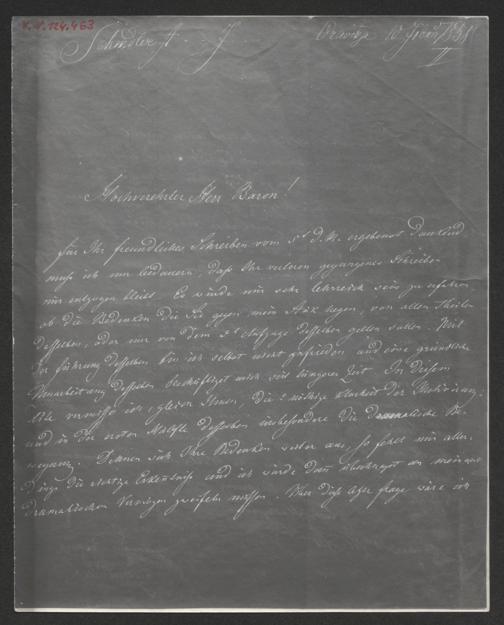 Schindler A. J
Hochverehrter Herr Baron!
Für Ihr freundliches Schreiben vom 5t d. M. ergebenst dankend
muß ich nur bedauern, daß Ihr verloren gegangenes Schreiben
mir entzogen bleibt. Es würde mir sehr lehrreich sein zu erfahren
ob die Bedenken die Sie gegen mein Stük hegen, von allen Theilen
desselben, oder nur von dem desselben gelten sollen. Mit
der Führung desselben bin ich selbst nicht zufrieden und eine gründliche
Umarbeitung desselben beschäftigt mich seit längerer Zeit. In diesem
vermisse ich, gleich Ihnen, die nöthige Klarheit der
und in der ersten Hälfte desselben insbesondere die dramatische Be-
wegung. Dehnen sich Ihre Bedenken weiter aus, so fehlt mir aller-
dings die richtige Erkentniß und ich würde dann überhaupt an meinem
dramatischen Vermögen zweifeln müssen. Über diese Frage wäre ich